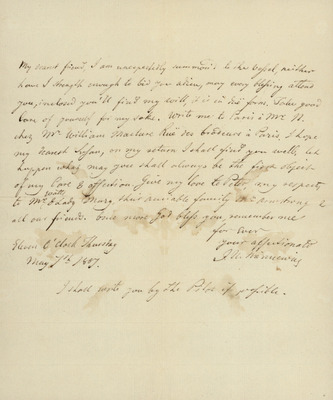 My dearest friend, I am unexpectedly summon'd to the vessel, neither
have I strength enough to bid you adieu, may every blessing attend
you, inclosed you'll find my will, it is in due form. Take good
care of yourself for my sake. Write me to Paris à Mr. N.
chez Mr. William Maclure Rue des à Paris, I hope
my dearest Susan, on my return I shall find you well, let
happen what may you shall always be the first object
of my Love & affection Give my love to Peter, my respects
to Mr. & Lady Mary, that amiable family the Armstrong &
all our friends. Once more God bless you, remember me
for ever
your affectionate
J. U. Niemcewicz
Eleven O'clock Thursday
May 7th 1807.
I shall write you by the Pilot if possible.